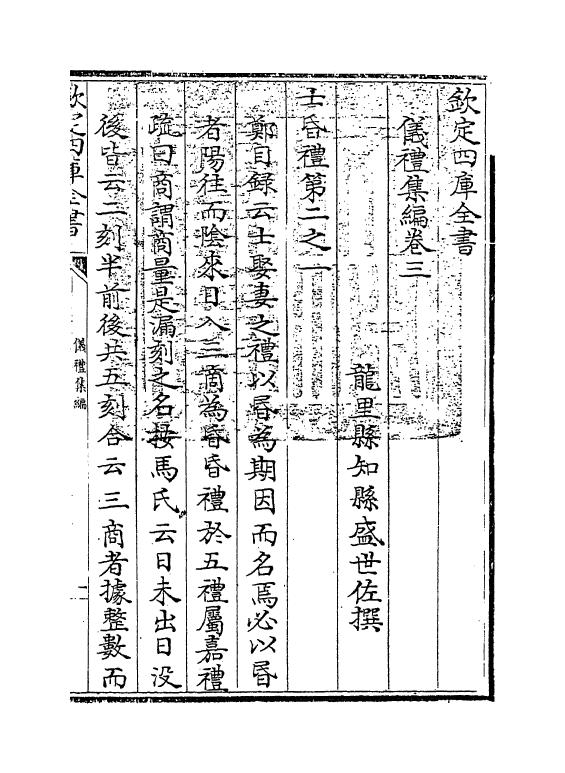 欽定四庫全書
儀禮集編卷三
龍里縣知縣盛世佐撰
士昏禮第二之一
鄭目錄云士娶妻之禮以昬為期因而名焉必以昬
者陽往而隂來日入三商為昏昏禮於五禮屬嘉禮
疏曰商謂商量是漏刻之名按馬氏云日未出日沒
後皆云二刻半前後共五刻今云三商者據整數而
欽定四庫全書
儀禮集編
一